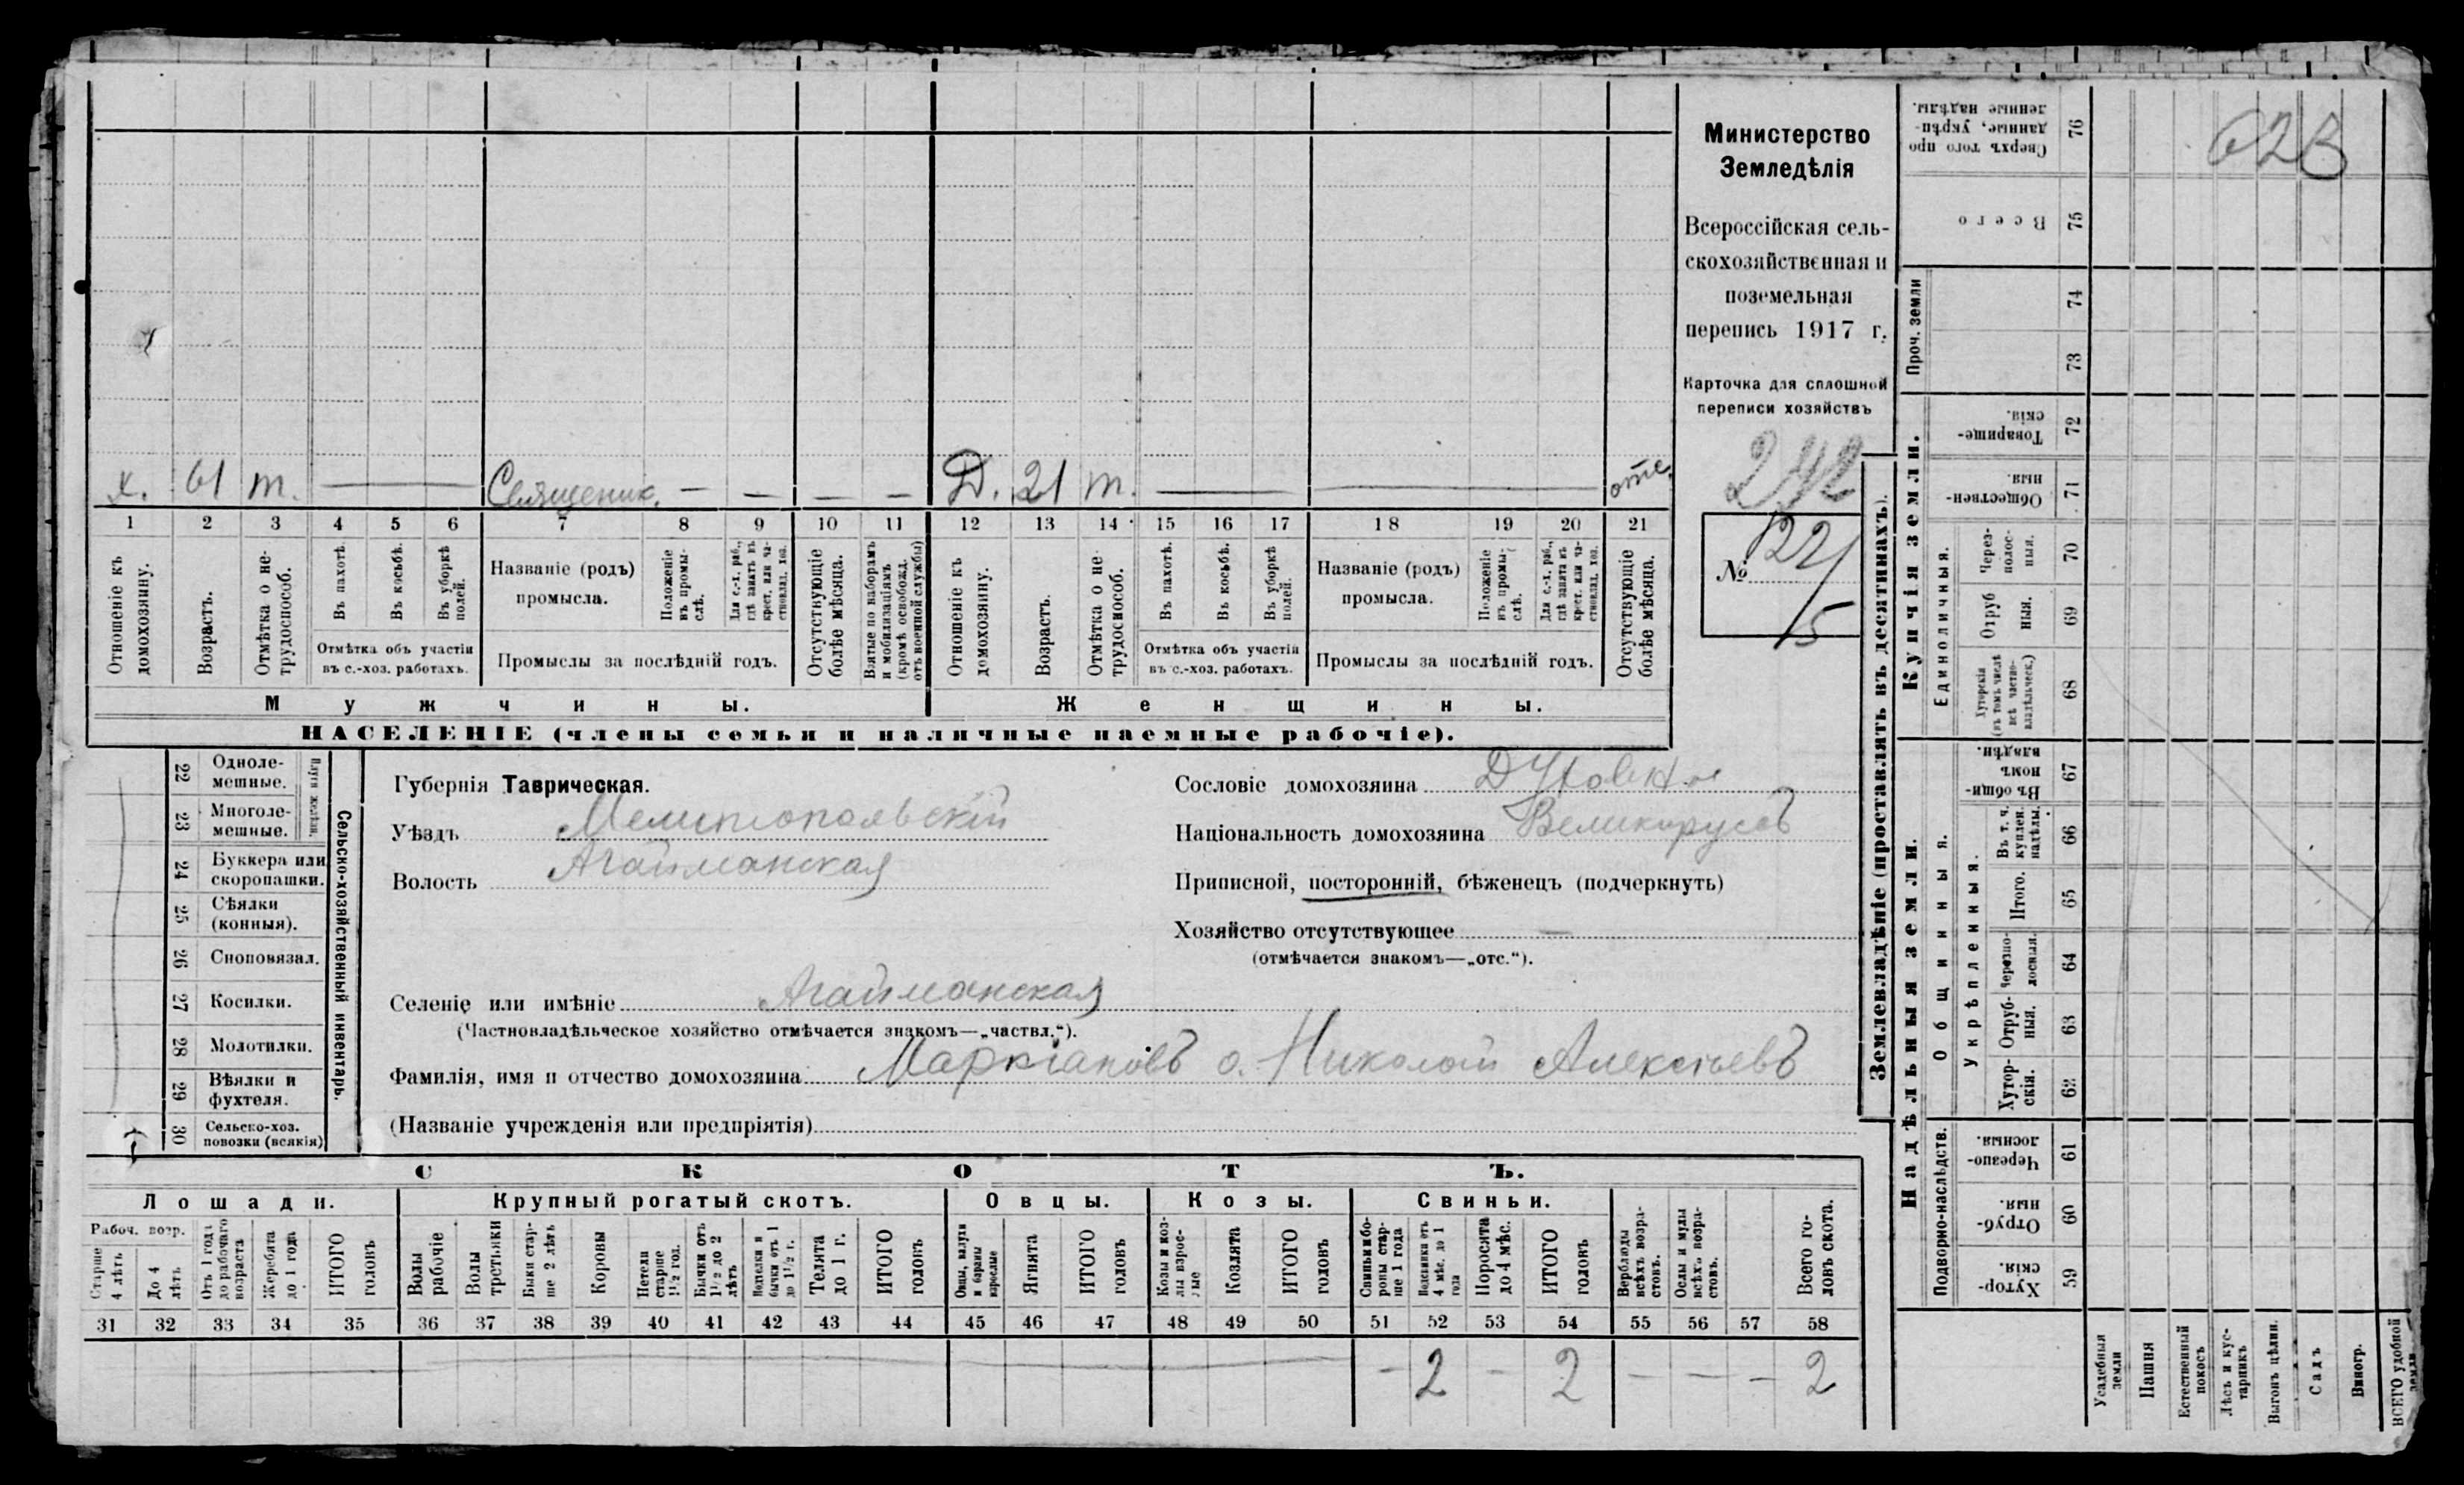 х. 61 т. — Священик. — — — — Д. 21 т. — — отс.
1 2 3 4 5 6 7 8 9 10 11 12 13 14 15 16 17 18 19 20 21
Отношеніе къ домохозяину.
Возрастъ.
Отмѣтка о не-трудоспособ.
Въ пахотѣ.
Въ косьбѣ.
Въ уборкѣ полей.
Отмѣтка объ участіи
въ с.-хоз. работахъ.
Названіе (родъ)
промысла.
Положеніе въ промы-слѣ.
Для с.-х. раб., гдѣ занятъ въ крест. или ча-стновлад. хоз.
Промыслы за послѣдній годъ.
Отсутствующіе болѣе мѣсяца.
Взятые по наборамъ и мобилизаціямъ (кромѣ освобожд. отъ военной службы)
Отношеніе къ домохозяину.
Возрастъ.
Отмѣтка о не-трудоспособ.
Въ пахотѣ.
Въ косьбѣ.
Въ уборкѣ полей.
Отмѣтка объ участіи
въ с.-хоз. работахъ.
Названіе (родъ)
промысла.
Положеніе въ промы-слѣ.
Для с.-х. раб., гдѣ занята въ крест. или ча-стновлад. хоз.
Промыслы за послѣдній годъ.
Отсутствующіе болѣе мѣсяца.
Мужчины.
Женщины.
НАСЕЛЕНІЕ (члены семьи и наличные наемные рабочіе).
Министерство
Земледѣлія
Всероссійская сель-
скохозяйственная и
поземельная
перепись 1917 г.
Карточка для сплошной
переписи хозяйствъ
242
№ 122/5
22 Одноле-мешные.
23 Многоле-мешные.
Плуги желѣзн.
24 Буккера или скоропашки.
25 Сѣялки (конныя).
26 Сноповязал.
27 Косилки.
28 Молотилки.
29 Вѣялки и фухтеля.
30 Сельско-хоз. повозки (всякія)
Сельско-хозяйственный инвентарь.
Губернія Таврическая.
Уѣздъ Мелитопольскій
Волость Агайманская
Селеніе или имѣніе Агайманская
(Частновладѣльческое хозяйство отмѣчается знакомъ—„частвл.“).
Фамилія, имя и отчество домохозяина о. Николай Алексѣевъ
(Названіе учрежденія или предпріятія)
Сословіе домохозяина Духовное
Національность домохозяина Великорусъ
Приписной, посторонній, бѣженецъ (подчеркнуть)
Хозяйство отсутствующее —
(отмѣчается знакомъ—„отс.“).
СКОТЪ.
Лошади. Крупный рогатый скотъ. Овцы. Козы. Свиньи.
Рабоч. возр.
Старше 4 лѣтъ
До 4 лѣтъ
Отъ 1 года до рабочаго возраста
Жеребята до 1 года
ИТОГО головъ
Волы рабочіе
Волы третьяки
Быки стар-ше 2 лѣтъ
Коровы
Нетели старше 1½ год.
Бычки отъ 1½ до 2 лѣтъ
Подтелки и бычки отъ 1 до 1½ г.
Телята до 1 г.
ИТОГО головъ
Овцы, валухи и бараны взрослые
Ягнята
ИТОГО головъ
Козы и коз-лы взрос-лые
Козлята
ИТОГО головъ
Свиньи и бо-ровы стар-ше 1 года
Подсвинки отъ 4 мѣс. до 1 года
Поросята до 4 мѣс.
ИТОГО головъ
Верблюды всѣхъ возра-стовъ.
Ослы и мулы всѣхъ возра-стовъ.
Всего го-ловъ скота.
31 32 33 34 35 36 37 38 39 40 41 42 43 44 45 46 47 48 49 50 51 52 53 54 55 56 57 58
— 2 — 2 — — — 2
Землевладѣніе (проставлять въ десятинахъ).
Купчія земли.
Надѣльныя земли.
Сверхъ того про-данные, укрѣп-ленные надѣлы. 76
Всего 75
Проч. земли 74 73
Товарище-скія. 72
Обществен-ныя. 71
Единоличныя.
Через-полос-ныя. 70
Отруб-ныя. 69
Хуторскія (въ томъ числѣ всѣ частно-владѣльческ.) 68
Общинныя.
Въ общин-номъ владѣн. 67
Укрѣпленныя.
Въ т. ч. куплен. надѣлы. 66
Итого. 65
Черезпо-лосныя. 64
Отруб-ныя. 63
Хутор-скія. 62
Подворно-наслѣдств.
Черезпо-лосныя. 61
Отруб-ныя. 60
Хутор-скія. 59
Усадебныя земли
Пашня
Естественный покосъ
Лѣсъ и кус-тарникъ
Выгонъ цѣлин.
Садъ
Виногр.
ВСЕГО удобной земли